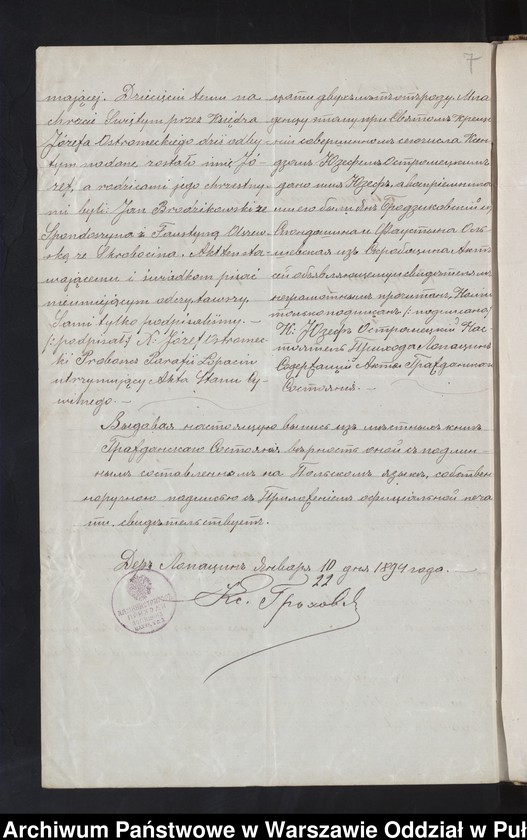 7
mającej. Dziecięciu temu na
chrzcie Świętym przez Księdza
Józefa Ostromeckiego dziś odby-
tym nadane zostało imię Jó-
zef, a rodzicami jego chrzestny-
mi byli: Jan Brodzikowski ze
Spondoszyna i Faustyna Olszew-
ska ze Skrobocina. Akt ten sta-
wającemu i świadkom pisać
nieumiejącym odczytawszy
Sami tylko podpisaliśmy. —
/: podpisał :/ X. Józef Ostromec-
ki Proboszcz Parafii Łopacin
utrzymujący Akta Stanu Cy-
wilnego. —
двухъ лѣтъ отъ роду. Мла-
денцу этому при Святомъ Крещ
совершенномъ Ксен-
дзомъ Юзефомъ Остромецкимъ
дано имя Юзефъ, а воспріемника
ми его были Янъ Бродзиковскій изъ
и Фаустина Оль-
шевская изъ Скробоцина. Актъ
сей объявляющему и свидѣтелямъ
неграмотнымъ прочитанъ, Нами
только подписанъ /: подписалъ :/
К. Юзефъ Остромецкій Нас-
тоятель Прихода Лопацинъ
Содержащій Акты Гражданскаго
Состоянія. —
Выдавая настоящую выпись изъ мѣстныхъ книгъ
Гражданскаго Состоянія вѣрность оной съ подлин-
нымъ составленнымъ на Польскомъ языкѣ, собствен
норучною подписью съ Приложеніемъ оффиціальной печа
ти свидѣтельствуетъ.
Дер. Лопацинъ Января 10/22 дня 1894 года. —
Кс.
Archiwum Państwowe w Warszawie Oddział w Puł